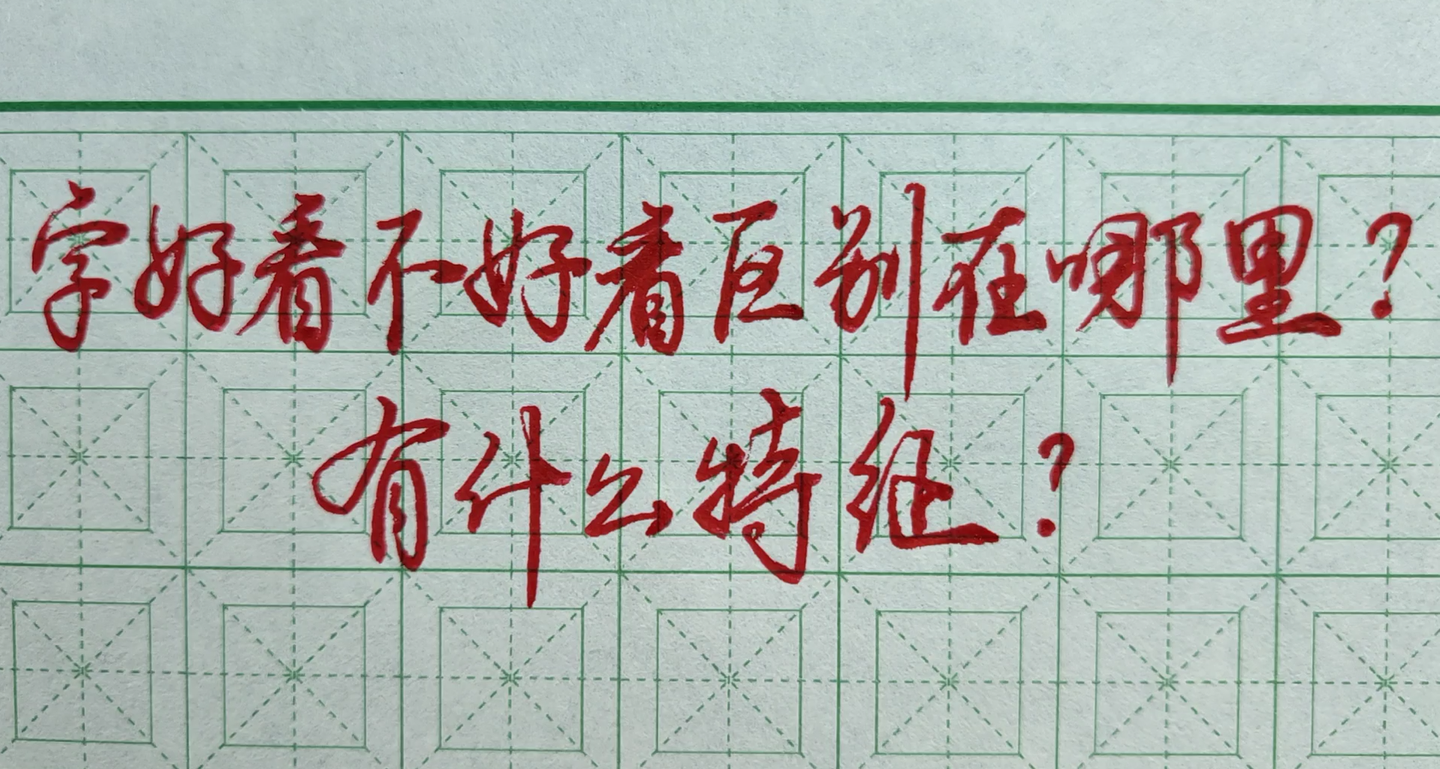 字好看不好看区别在哪里？
有什么特征？